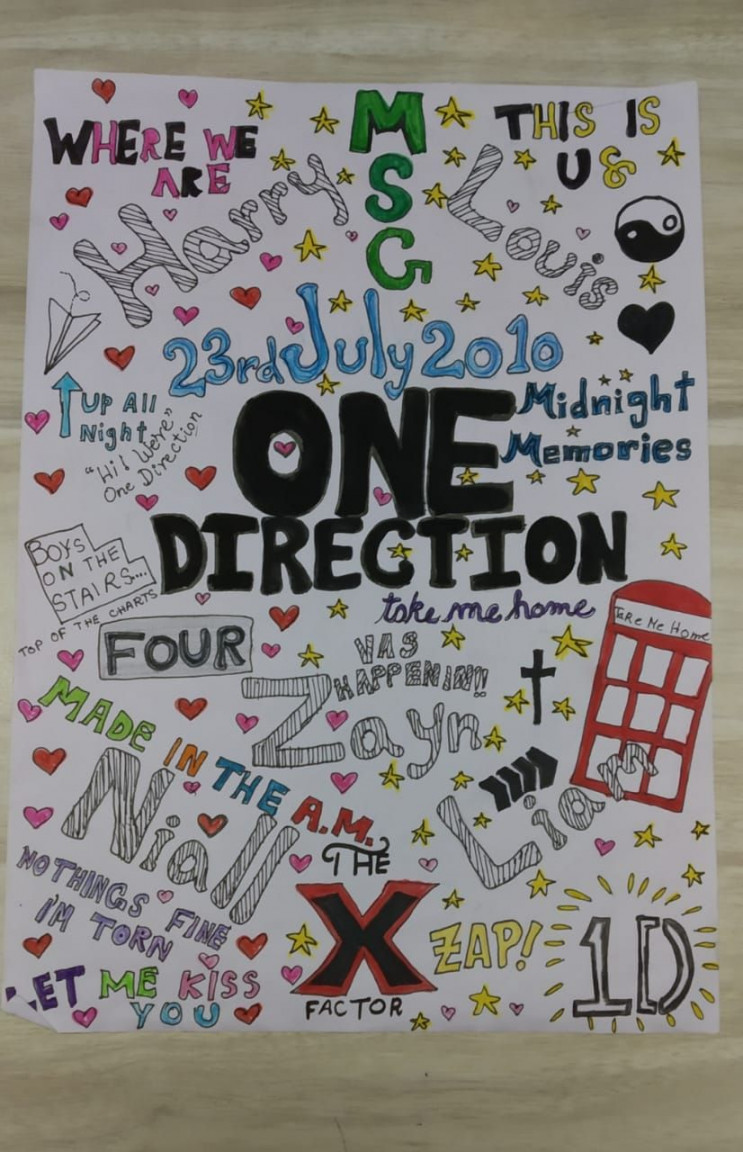 WHERE WE
ARE
MSG
THIS IS
US
Harry
Louis
23rd July 2010
UP All
Night
"Hi! We're"
One Direction
Midnight
Memories
ONE
DIRECTION
BOYS
ON THE
STAIRS....
TOP OF THE CHARTS
take me home
Take Me Home
FOUR
VAS
HAPPENIN!!
Zayn
MADE IN THE A.M.
Niall
Liam
NOTHINGS FINE
I'M TORN
THE
X
FACTOR
ZAP!
1D
LET ME KISS
YOU